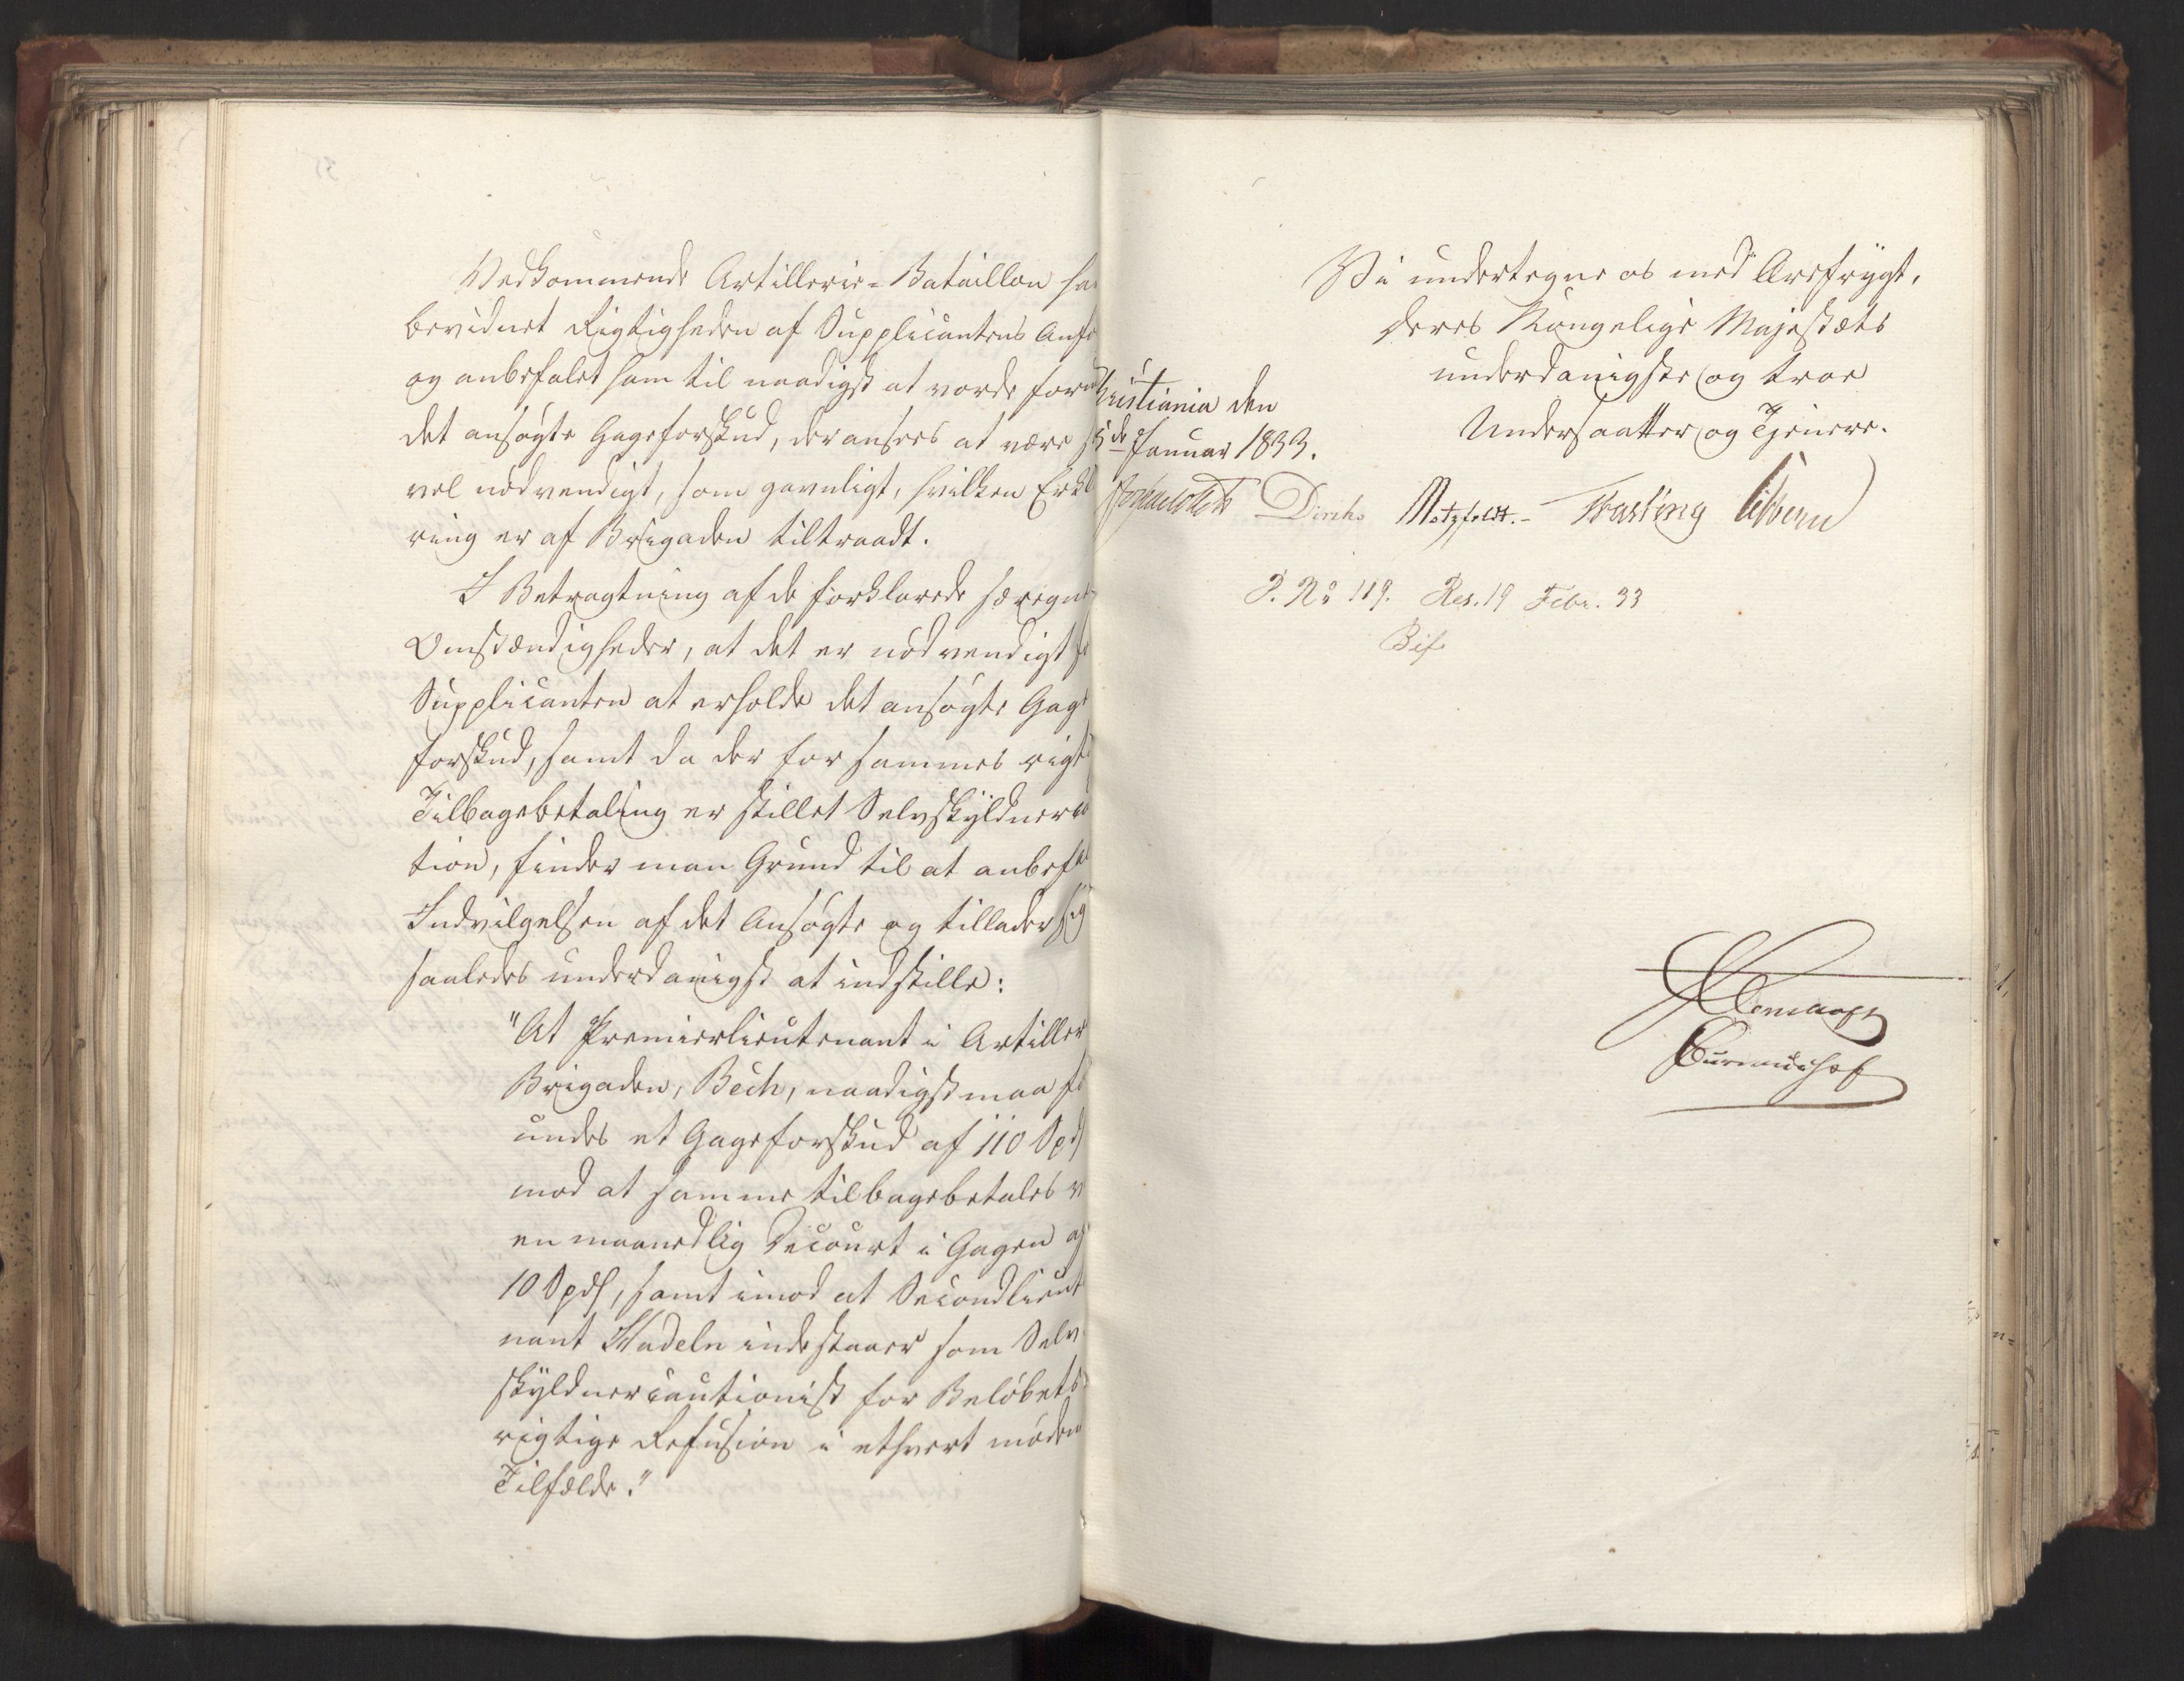 Vedkommende Artillerie-Bataillon ha
bevidnet Rigtigheden af Supplicantens Anfø
og anbefalet ham til naadigst at vorde forun
det ansøgte Gageforskud, der ansees at være s
vel nødvendigt, som gavnligt, hvilken Erkl
ring er af Brigaden tiltraadt.
I Betragtning af de forklarede særegne
Omstændigheder, at det er nødvendigt fo
Supplicanten at erholde det ansøgte Gage
forskud, samt da der for sammes rigti
Tilbagebetaling er stillet Selvskyldnerca
tion, finder man Grund til at anbefal
Indvilgelsen af det Ansøgte og tillader sig
saaledes underdanigst at indstille:
"At Premierlieutenant i Artiller
Brigaden, Bech, naadigst maa fo
undes et Gageforskud af 110 Spd
mod at samme tilbagebetales v
en maanedlig Decourt i Gagen af
10 Spd, samt imod at Secondlieut
nant Stadeln indestaaer som Selv
skyldnercautionist for Beløbets
rigtige Refusion i ethvert møden
Tilfælde."
Vi undertegne os med Ærefrygt,
Deres Kongelige Majestæts
underdanigste og troe
Undersaatter og Tjenere.
hristiania den
5de Januar 1833.
Diriks Motzfeldt. Fasting Sibbern
P. No 119. Res. 19 Febr. 33
Bif.